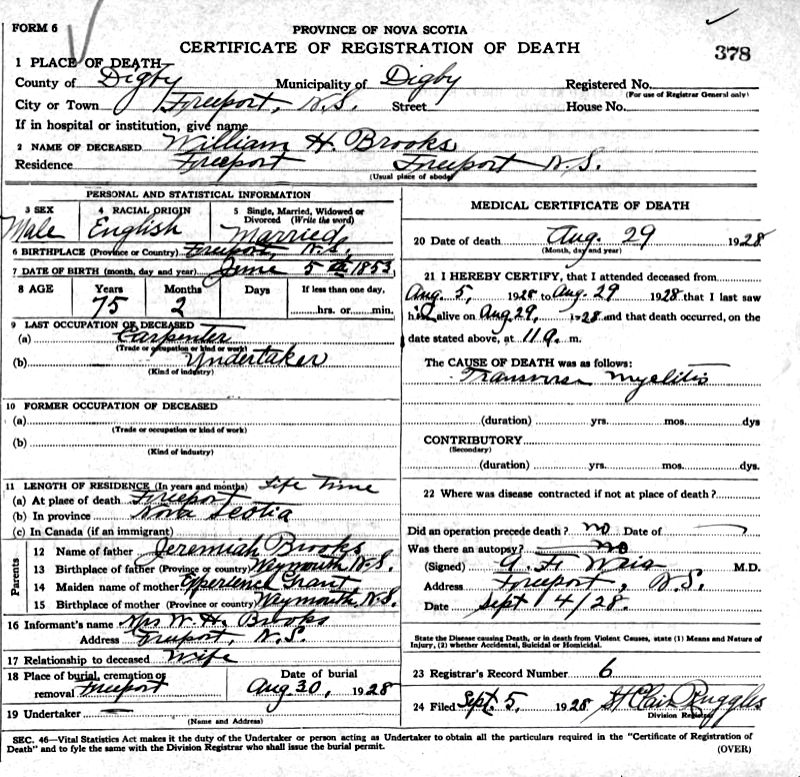 FORM 6
PROVINCE OF NOVA SCOTIA
CERTIFICATE OF REGISTRATION OF DEATH
378
1 PLACE OF DEATH—
County of Digby Municipality of Digby Registered No.
(For use of Registrar General only)
City or Town Freeport, N.S. Street House No.
If in hospital or institution, give name
2 NAME OF DECEASED William H. Brooks
Residence Freeport Freeport N.S.
(Usual place of abode)
PERSONAL AND STATISTICAL INFORMATION
3 SEX 4 RACIAL ORIGIN 5 Single, Married, Widowed or Divorced (Write the word)
Male English Married
6 BIRTHPLACE (Province or Country) Freeport, N.S.
7 DATE OF BIRTH (month, day and year) June 5th 1853
8 AGE Years Months Days If less than one day,
75 2 hrs. or min.
9 LAST OCCUPATION OF DECEASED
(a) Carpenter
(Trade or occupation or kind or work)
(b) Undertaker
(Kind of industry)
10 FORMER OCCUPATION OF DECEASED
(a)
(Trade or occupation or kind of work)
(b)
(Kind of industry)
11 LENGTH OF RESIDENCE (In years and months) Life Time
(a) At place of death Freeport
(b) In province Nova Scotia
(c) In Canada (if an immigrant)
Parents
12 Name of father Jeremiah Brooks
13 Birthplace of father (Province or country) Weymouth, N.S.
14 Maiden name of mother Experience Grant
15 Birthplace of mother (Province or country) Weymouth, N.S.
16 Informant's name Mrs W. H. Brooks
Address Freeport, N.S.
17 Relationship to deceased Wife
18 Place of burial, cremation or removal Freeport
Date of burial
Aug 30, 1928
19 Undertaker —
(Name and Address)
MEDICAL CERTIFICATE OF DEATH
20 Date of death Aug. 29 1928
(Month, day and year)
21 I HEREBY CERTIFY, that I attended deceased from
Aug. 5, 1928 to Aug. 29 1928 that I last saw
alive on Aug 29, 1928 and that death occurred, on the
date stated above, at 11 a. m.
The CAUSE OF DEATH was as follows:
Transverse myelitis
(duration) yrs. mos. dys
CONTRIBUTORY
(Secondary)
(duration) yrs. mos. dys
22 Where was disease contracted if not at place of death?
Did an operation precede death? no Date of
Was there an autopsy? no
(Signed) M.D.
Address Freeport, N.S.
Date Sept 4/28.
State the Disease causing Death, or in death from Violent Causes, state (1) Means and Nature of
Injury, (2) whether Accidental, Suicidal or Homicidal.
23 Registrar's Record Number 6
24 Filed Sept. 5, 1928 St Clair Ruggles
Division Registrar
SEC. 46—Vital Statistics Act makes it the duty of the Undertaker or person acting as Undertaker to obtain all the particulars required in the "Certificate of Registration of
Death" and to fyle the same with the Division Registrar who shall issue the burial permit.
(OVER)